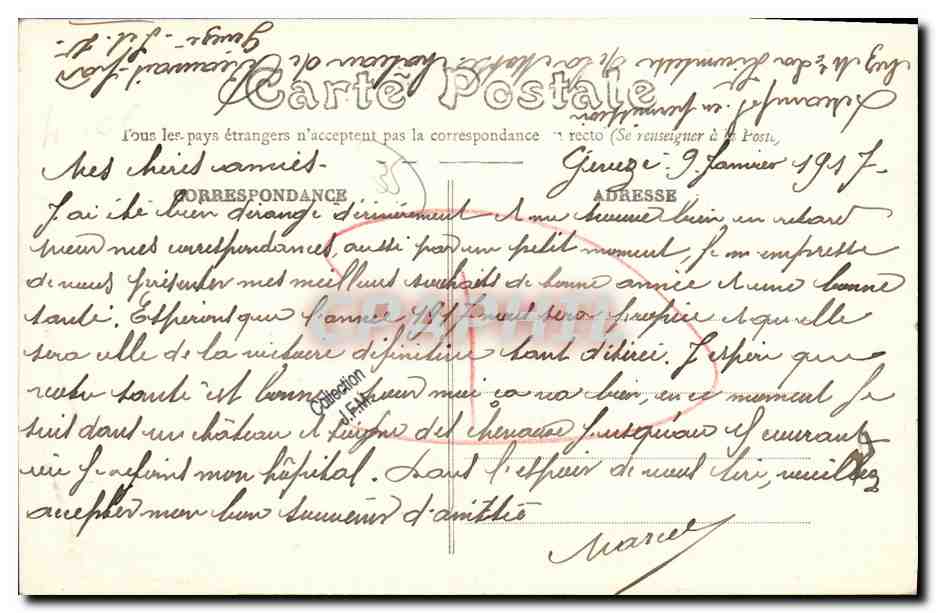 chez Mr de la Simonette de la Motte château de Beauvais par
Gueugé - Sel. S.
Carte Postale
Tous les pays étrangers n'acceptent pas la correspondance au recto (Se renseigner à la Poste)
Mes chères amies - Gueugé 9 Janvier 1917 -
CORRESPONDANCE ADRESSE
J'ai été bien dérangé dernièrement et me trouve bien en retard
pour mes correspondances, aussi par un petit moment, je m'empresse
de vous présenter mes meilleurs souhaits de bonne année et une bonne
santé. Espérons que l'année 1917 nous sera propice et qu'elle
sera celle de la victoire définitive tant désirée. J'espère que
votre santé est bonne, pour moi ça va bien, en ce moment je
suis dans un château et soigne des chevaux jusqu'au courant
où je rejoins mon hôpital. Dans l'espoir de vous lire, veuillez
accepter mon bon souvenir d'amitié
Marcel
Collection
J.F.M.
CPAPHIL